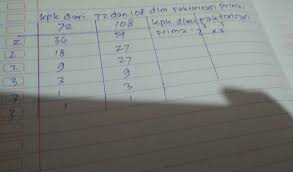 kpk dari 72 dan 108 dlm faktorisasi prima.
72 108 kpk dlm faktorisasi
2 36 54 prima = 2³ x 3³
2 18 27
2 9 27
3 3 9
3 1 3
3 1 1